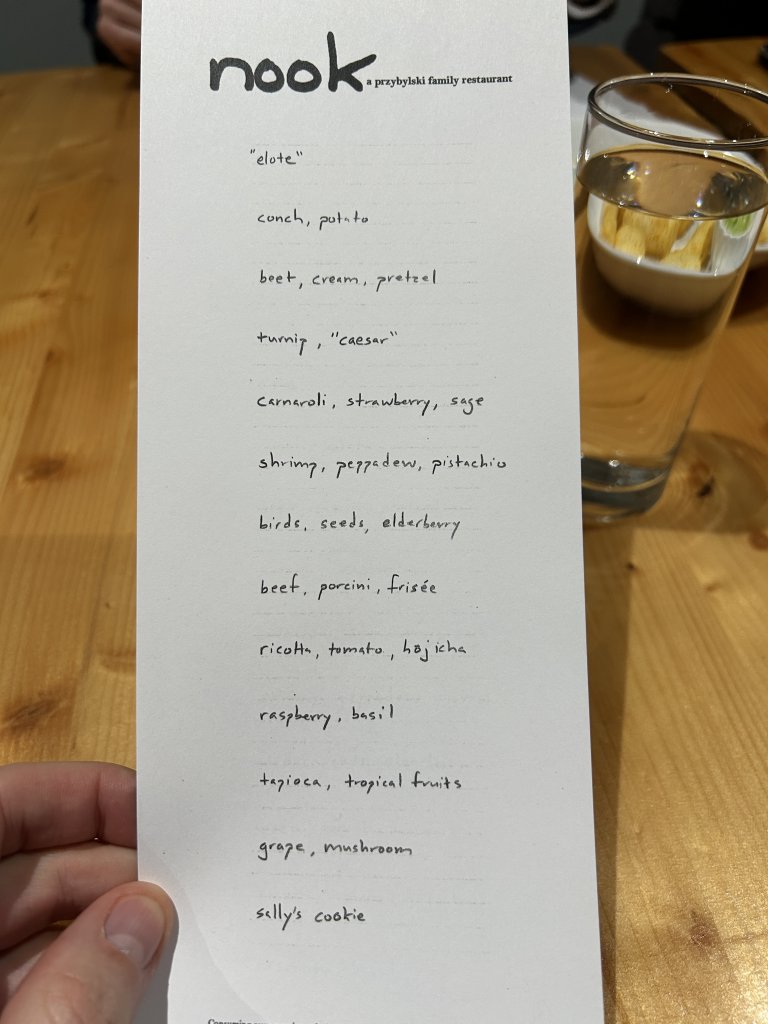 nook a przybylski family restaurant
"elote"
conch, potato
beet, cream, pretzel
turnip, "caesar"
carnaroli, strawberry, sage
shrimp, peppadew, pistachio
birds, seeds, elderberry
beef, porcini, frisée
ricotta, tomato, hojicha
raspberry, basil
tapioca, tropical fruits
grape, mushroom
sally's cookie